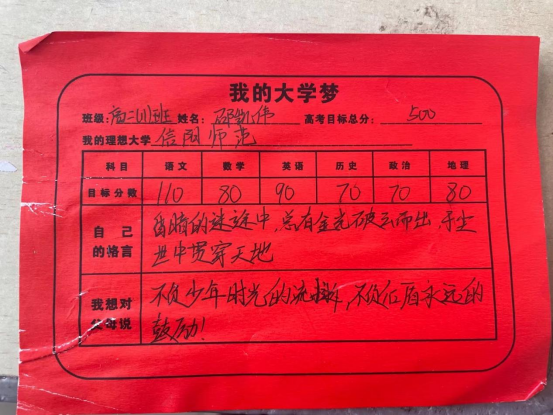 我的大学梦
班级: 高二(11)班 姓名: 邵凯伟 高考目标总分: 500
我的理想大学 信阳师范
科目 语文 数学 英语 历史 政治 地理
目标分数 110 80 90 70 70 80
自己的格言 昏暗的迷途中,总有金光破云而出,于尘
世中贯穿天地
我想对父母说 不负少年时光的流逝,不负后盾永远的
鼓励!